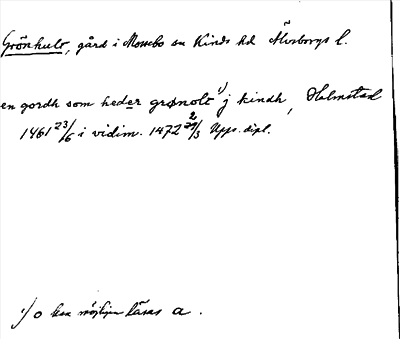 Grönhult, gård i Mossebo sn Kinds hd Älvsborgs l.
en gordh som heder grønolt 1) j kindh, Halmstad
1461 23/6 i vidim. 1472 2/3 Upps. dipl.
1) o kan möjligen läsas a.